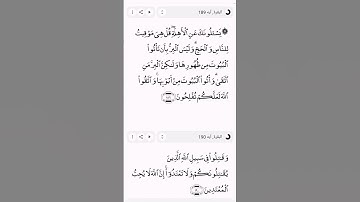 البقرة، آية 189
۞ يَسْـَٔلُونَكَ عَنِ ٱلْأَهِلَّةِ ۖ قُلْ هِىَ مَوَٰقِيتُ
لِلنَّاسِ وَٱلْحَجِّ ۗ وَلَيْسَ ٱلْبِرُّ بِأَن تَأْتُوا۟
ٱلْبُيُوتَ مِن ظُهُورِهَا وَلَـٰكِنَّ ٱلْبِرَّ مَنِ
ٱتَّقَىٰ ۗ وَأْتُوا۟ ٱلْبُيُوتَ مِنْ أَبْوَٰبِهَا ۚ وَٱتَّقُوا۟
ٱللَّهَ لَعَلَّكُمْ تُفْلِحُونَ ١٨٩
البقرة، آية 190
وَقَـٰتِلُوا۟ فِى سَبِيلِ ٱللَّهِ ٱلَّذِينَ
يُقَـٰتِلُونَكُمْ وَلَا تَعْتَدُوٓا۟ ۚ إِنَّ ٱللَّهَ لَا يُحِبُّ
ٱلْمُعْتَدِينَ ١٩٠